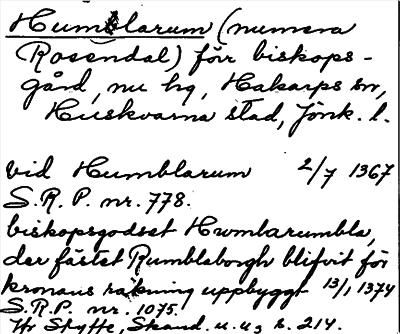 Humblarum (numera
Rosendal) förr biskops-
gård, nu hg, Hakarps sn,
Huskvarna stad, Jönk. l.
vid Humblarum 2/7 1367
S.R.P. nr. 778.
biskopsgodset Humlarumbla,
der fästet Rumblaborgh blifvit för
kronans räkning uppbyggt 13/1 1374
S.R.P. nr. 1075.
Hr Styffe, Skand. u. u., s. 214.